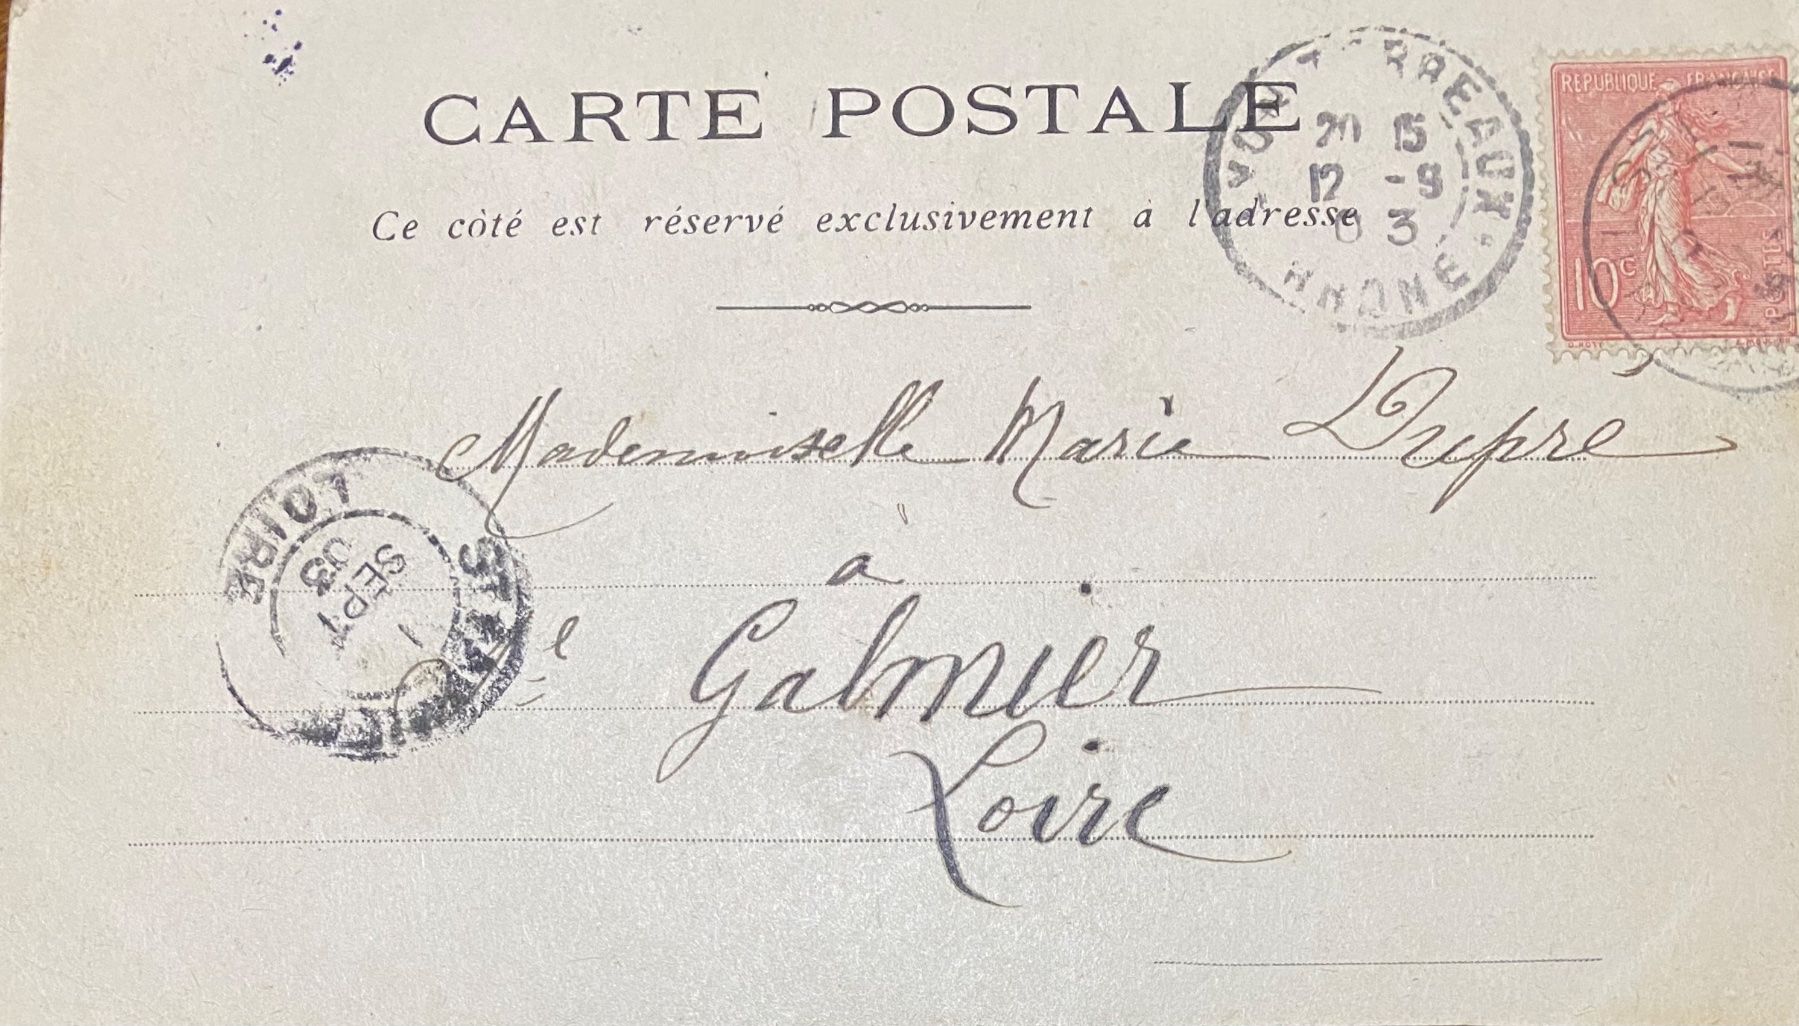 CARTE POSTALE
Ce côté est réservé exclusivement à l'adresse
LYON TERREAUX
20 15
12 -9
03
RHONE
REPUBLIQUE FRANÇAISE
10c
POSTES
O. ROTY
Mademoiselle Marie Dupré
à
Galmier
Loire
LOIRE
SEPT
03